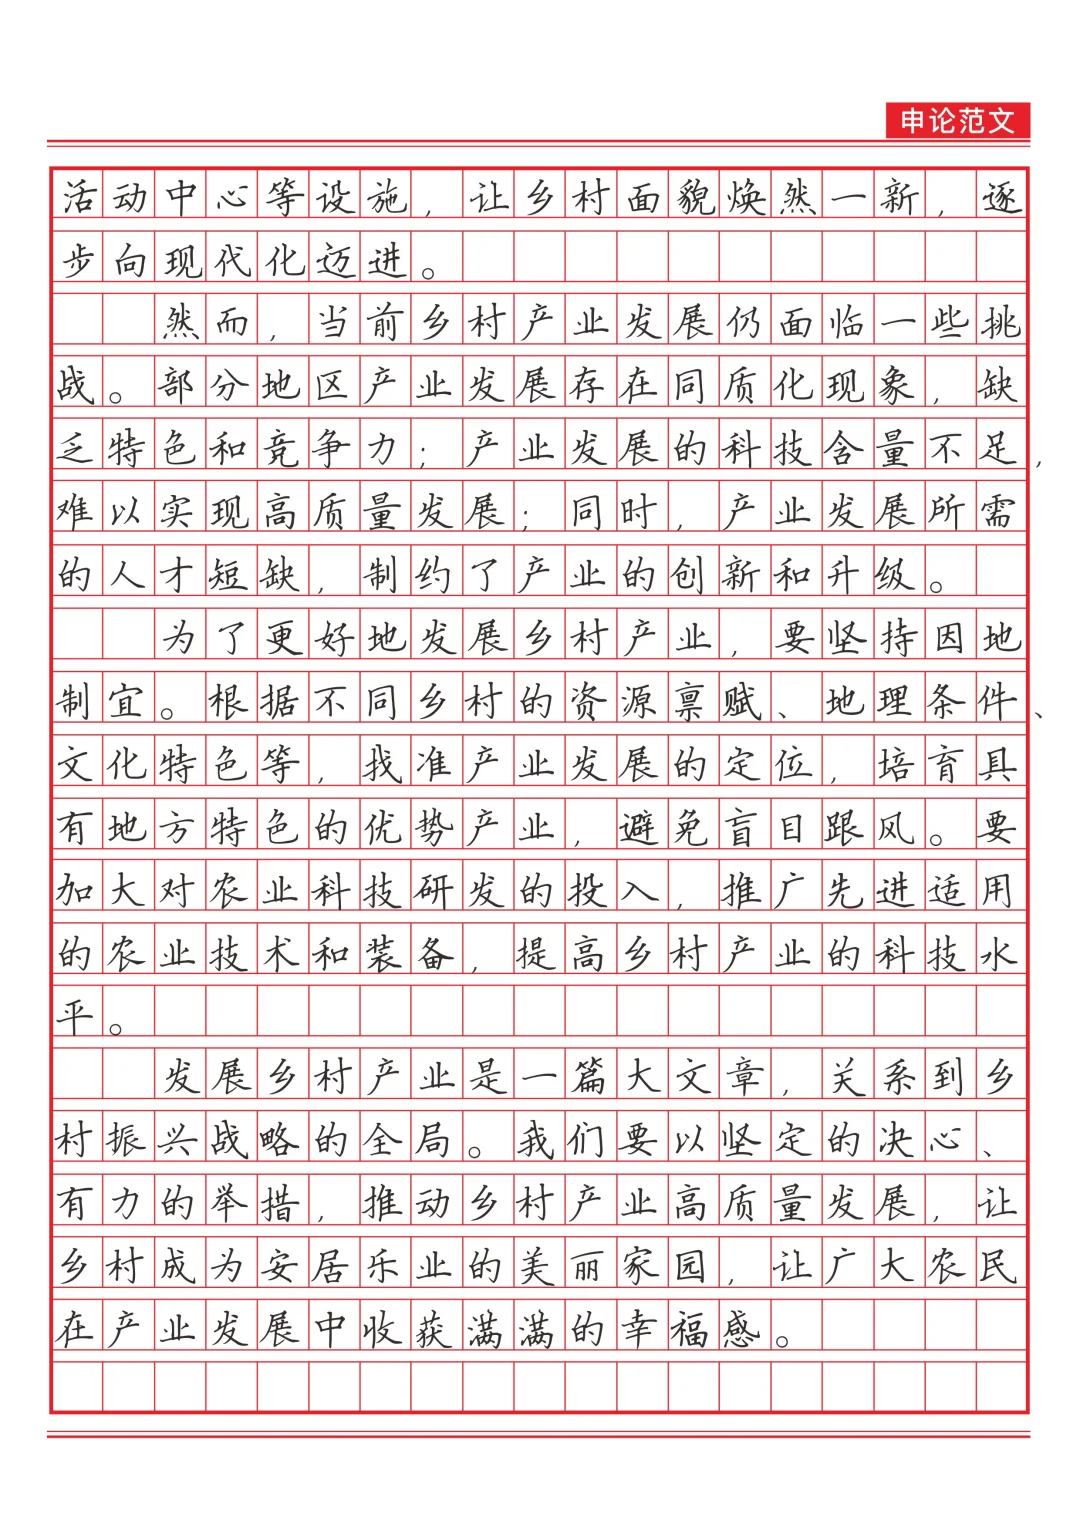 申论范文
活动中心等设施，让乡村面貌焕然一新，逐
步向现代化迈进。
然而，当前乡村产业发展仍面临一些挑
战。部分地区产业发展存在同质化现象，缺
乏特色和竞争力；产业发展的科技含量不足，
难以实现高质量发展；同时，产业发展所需
的人才短缺，制约了产业的创新和升级。
为了更好地发展乡村产业，要坚持因地
制宜。根据不同乡村的资源禀赋、地理条件、
文化特色等，找准产业发展的定位，培育具
有地方特色的优势产业，避免盲目跟风。要
加大对农业科技研发的投入，推广先进适用
的农业技术和装备，提高乡村产业的科技水
平。
发展乡村产业是一篇大文章，关系到乡
村振兴战略的全局。我们要以坚定的决心、
有力的举措，推动乡村产业高质量发展，让
乡村成为安居乐业的美丽家园，让广大农民
在产业发展中收获满满的幸福感。